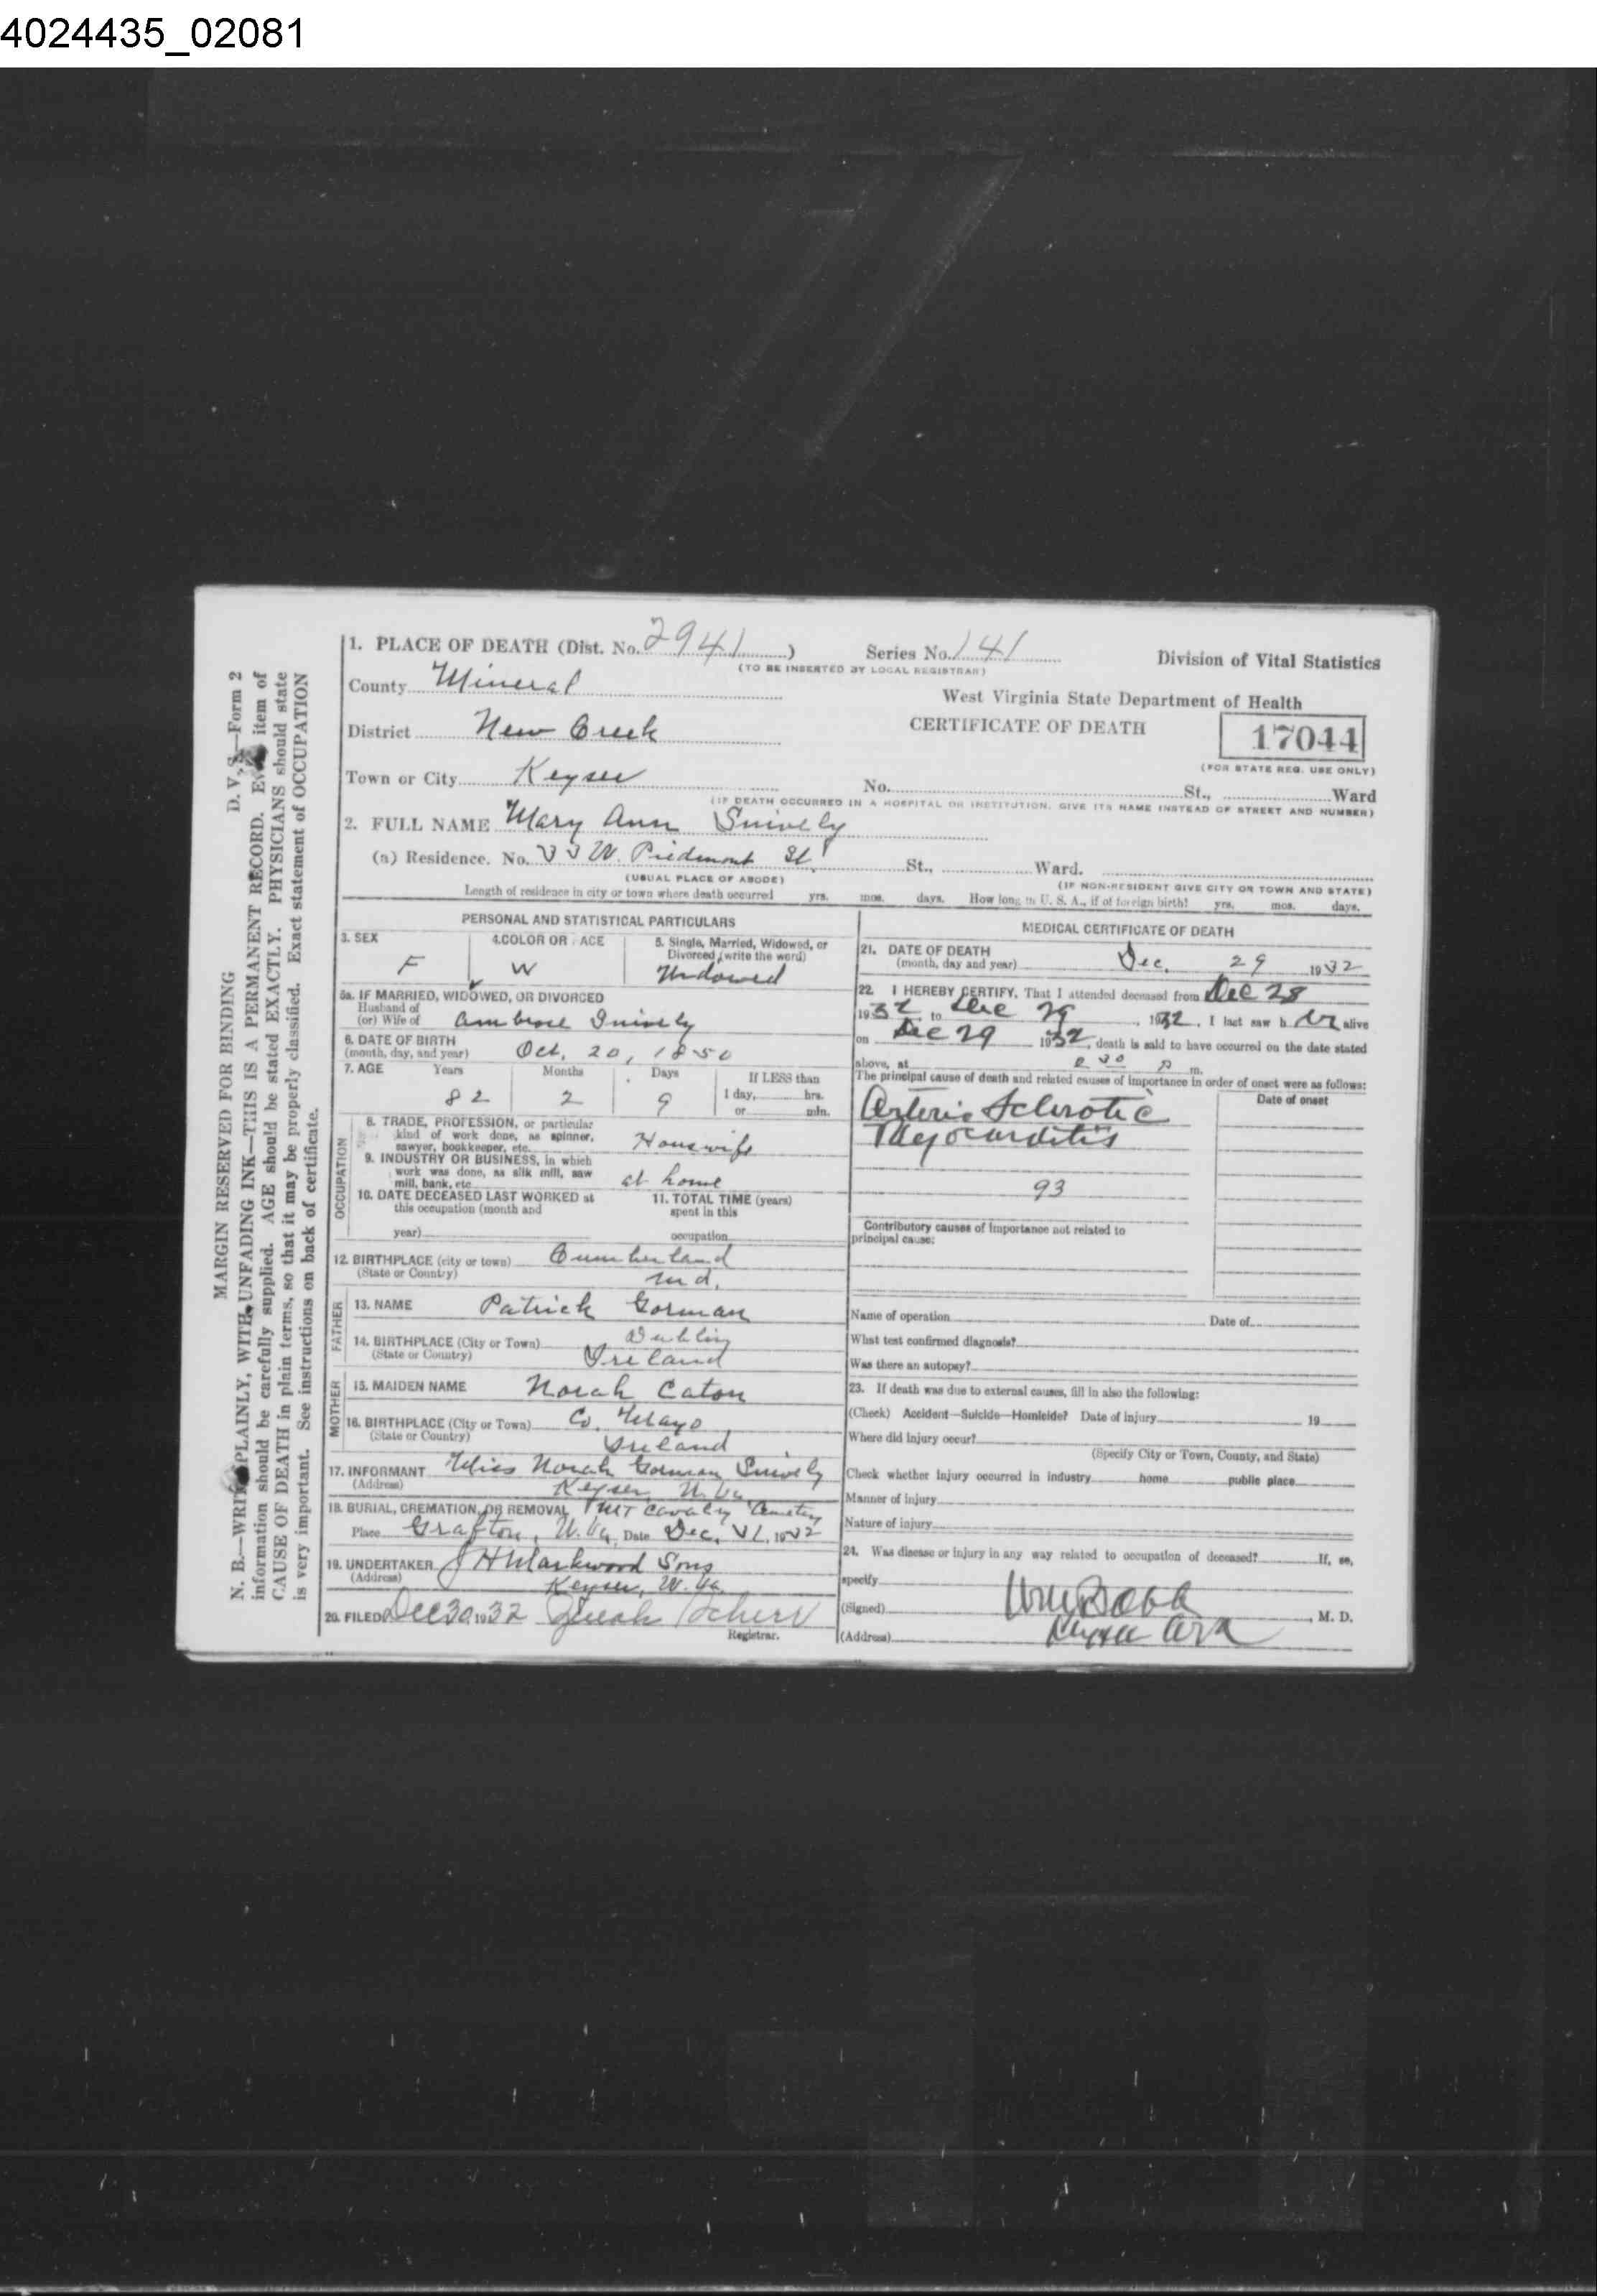 4024435_02081
MARGIN RESERVED FOR BINDING D. V. S.—Form 2
N. B.—WRITE PLAINLY, WITH UNFADING INK—THIS IS A PERMANENT RECORD. Every item of
information should be carefully supplied. AGE should be stated EXACTLY. PHYSICIANS should state
CAUSE OF DEATH in plain terms, so that it may be properly classified. Exact statement of OCCUPATION
is very important. See instructions on back of certificate.
1. PLACE OF DEATH (Dist. No. 2941) Series No. 141 Division of Vital Statistics
(TO BE INSERTED BY LOCAL REGISTRAR)
County Mineral
West Virginia State Department of Health
District New Creek
CERTIFICATE OF DEATH 17044
(FOR STATE REG. USE ONLY)
Town or City Keyser No. St., Ward
(IF DEATH OCCURRED IN A HOSPITAL OR INSTITUTION, GIVE ITS NAME INSTEAD OF STREET AND NUMBER)
2. FULL NAME Mary Ann Snively
(a) Residence. No. 33 W. Piedmont St St., Ward.
(USUAL PLACE OF ABODE) (IF NON-RESIDENT GIVE CITY OR TOWN AND STATE)
Length of residence in city or town where death occurred yrs. mos. days. How long in U. S. A., if of foreign birth? yrs. mos. days.
PERSONAL AND STATISTICAL PARTICULARS
3. SEX 4. COLOR OR RACE 5. Single, Married, Widowed, or
Divorced (write the word)
F W Widowed
5a. IF MARRIED, WIDOWED, OR DIVORCED
Husband of
(or) Wife of Ambrose Snively
6. DATE OF BIRTH
(month, day, and year) Oct. 20, 1850
7. AGE Years Months Days If LESS than
82 2 9 1 day, hrs.
or min.
OCCUPATION
8. TRADE, PROFESSION, or particular
kind of work done, as spinner,
sawyer, bookkeeper, etc. Housewife
9. INDUSTRY OR BUSINESS, in which
work was done, as silk mill, saw
mill, bank, etc. at home
10. DATE DECEASED LAST WORKED at 11. TOTAL TIME (years)
this occupation (month and spent in this
year) occupation
12. BIRTHPLACE (city or town) Cumberland
(State or Country) Md.
FATHER
13. NAME Patrick Gorman
14. BIRTHPLACE (City or Town) Dublin
(State or Country) Ireland
MOTHER
15. MAIDEN NAME Norah Caton
16. BIRTHPLACE (City or Town) Co. Mayo
(State or Country) Ireland
17. INFORMANT Miss Norah Gorman Snively
(Address) Keyser W. Va
18. BURIAL, CREMATION, OR REMOVAL Mt Cavalry Cemetery
Place Grafton, W. Va, Date Dec. 31, 1932
19. UNDERTAKER J H Markwood Sons
(Address) Keyser, W. Va.
20. FILED Dec 30, 1932
Registrar.
MEDICAL CERTIFICATE OF DEATH
21. DATE OF DEATH
(month, day and year) Dec. 29 1932
22. I HEREBY CERTIFY, That I attended deceased from Dec 28
1932 to Dec 29, 1932, I last saw her alive
on Dec 29 1932, death is said to have occurred on the date stated
above, at 30 P m.
The principal cause of death and related causes of importance in order of onset were as follows:
Date of onset
Arterio Sclerotic
Myocarditis
93
Contributory causes of importance not related to
principal cause:
Name of operation Date of
What test confirmed diagnosis?
Was there an autopsy?
23. If death was due to external causes, fill in also the following:
(Check) Accident—Suicide—Homicide? Date of injury 19
Where did injury occur?
(Specify City or Town, County, and State)
Check whether injury occurred in industry home public place
Manner of injury
Nature of injury
24. Was disease or injury in any way related to occupation of deceased? If, so,
specify
(Signed) , M. D.
(Address) Keyser